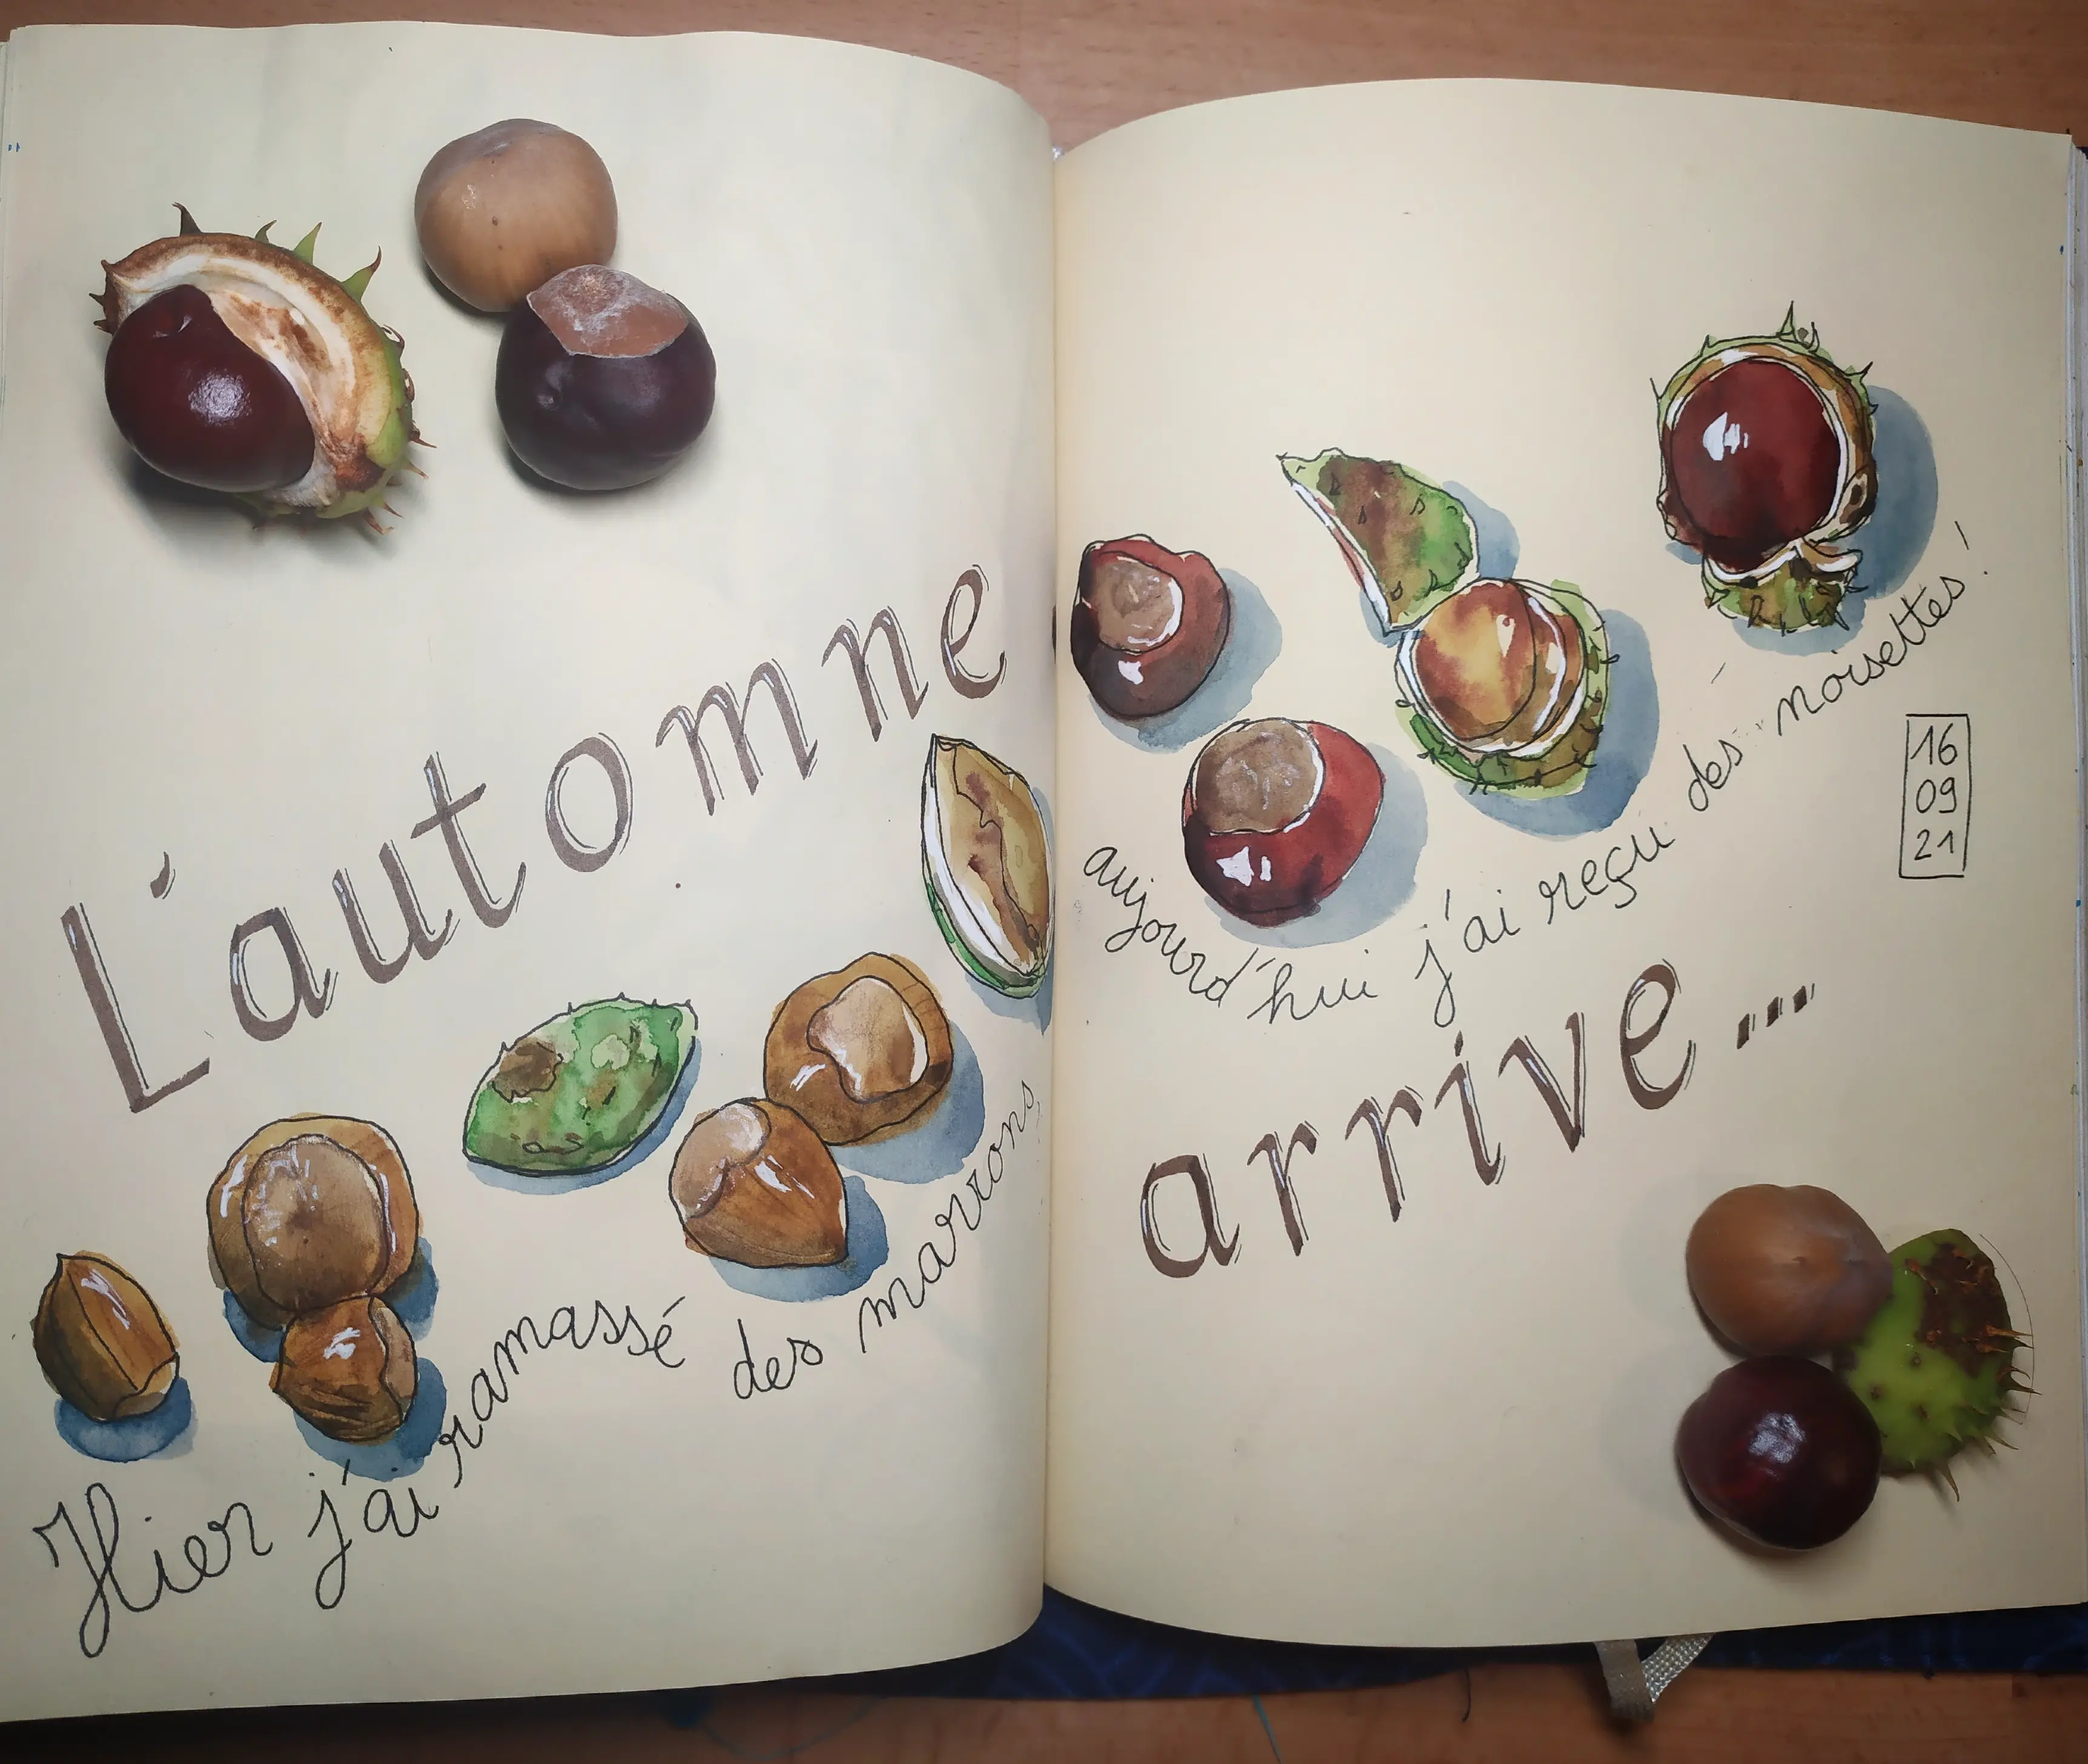 L'automne
arrive...
Hier j'ai ramassé des marrons
aujourd'hui j'ai reçu des noisettes !
16
09
21